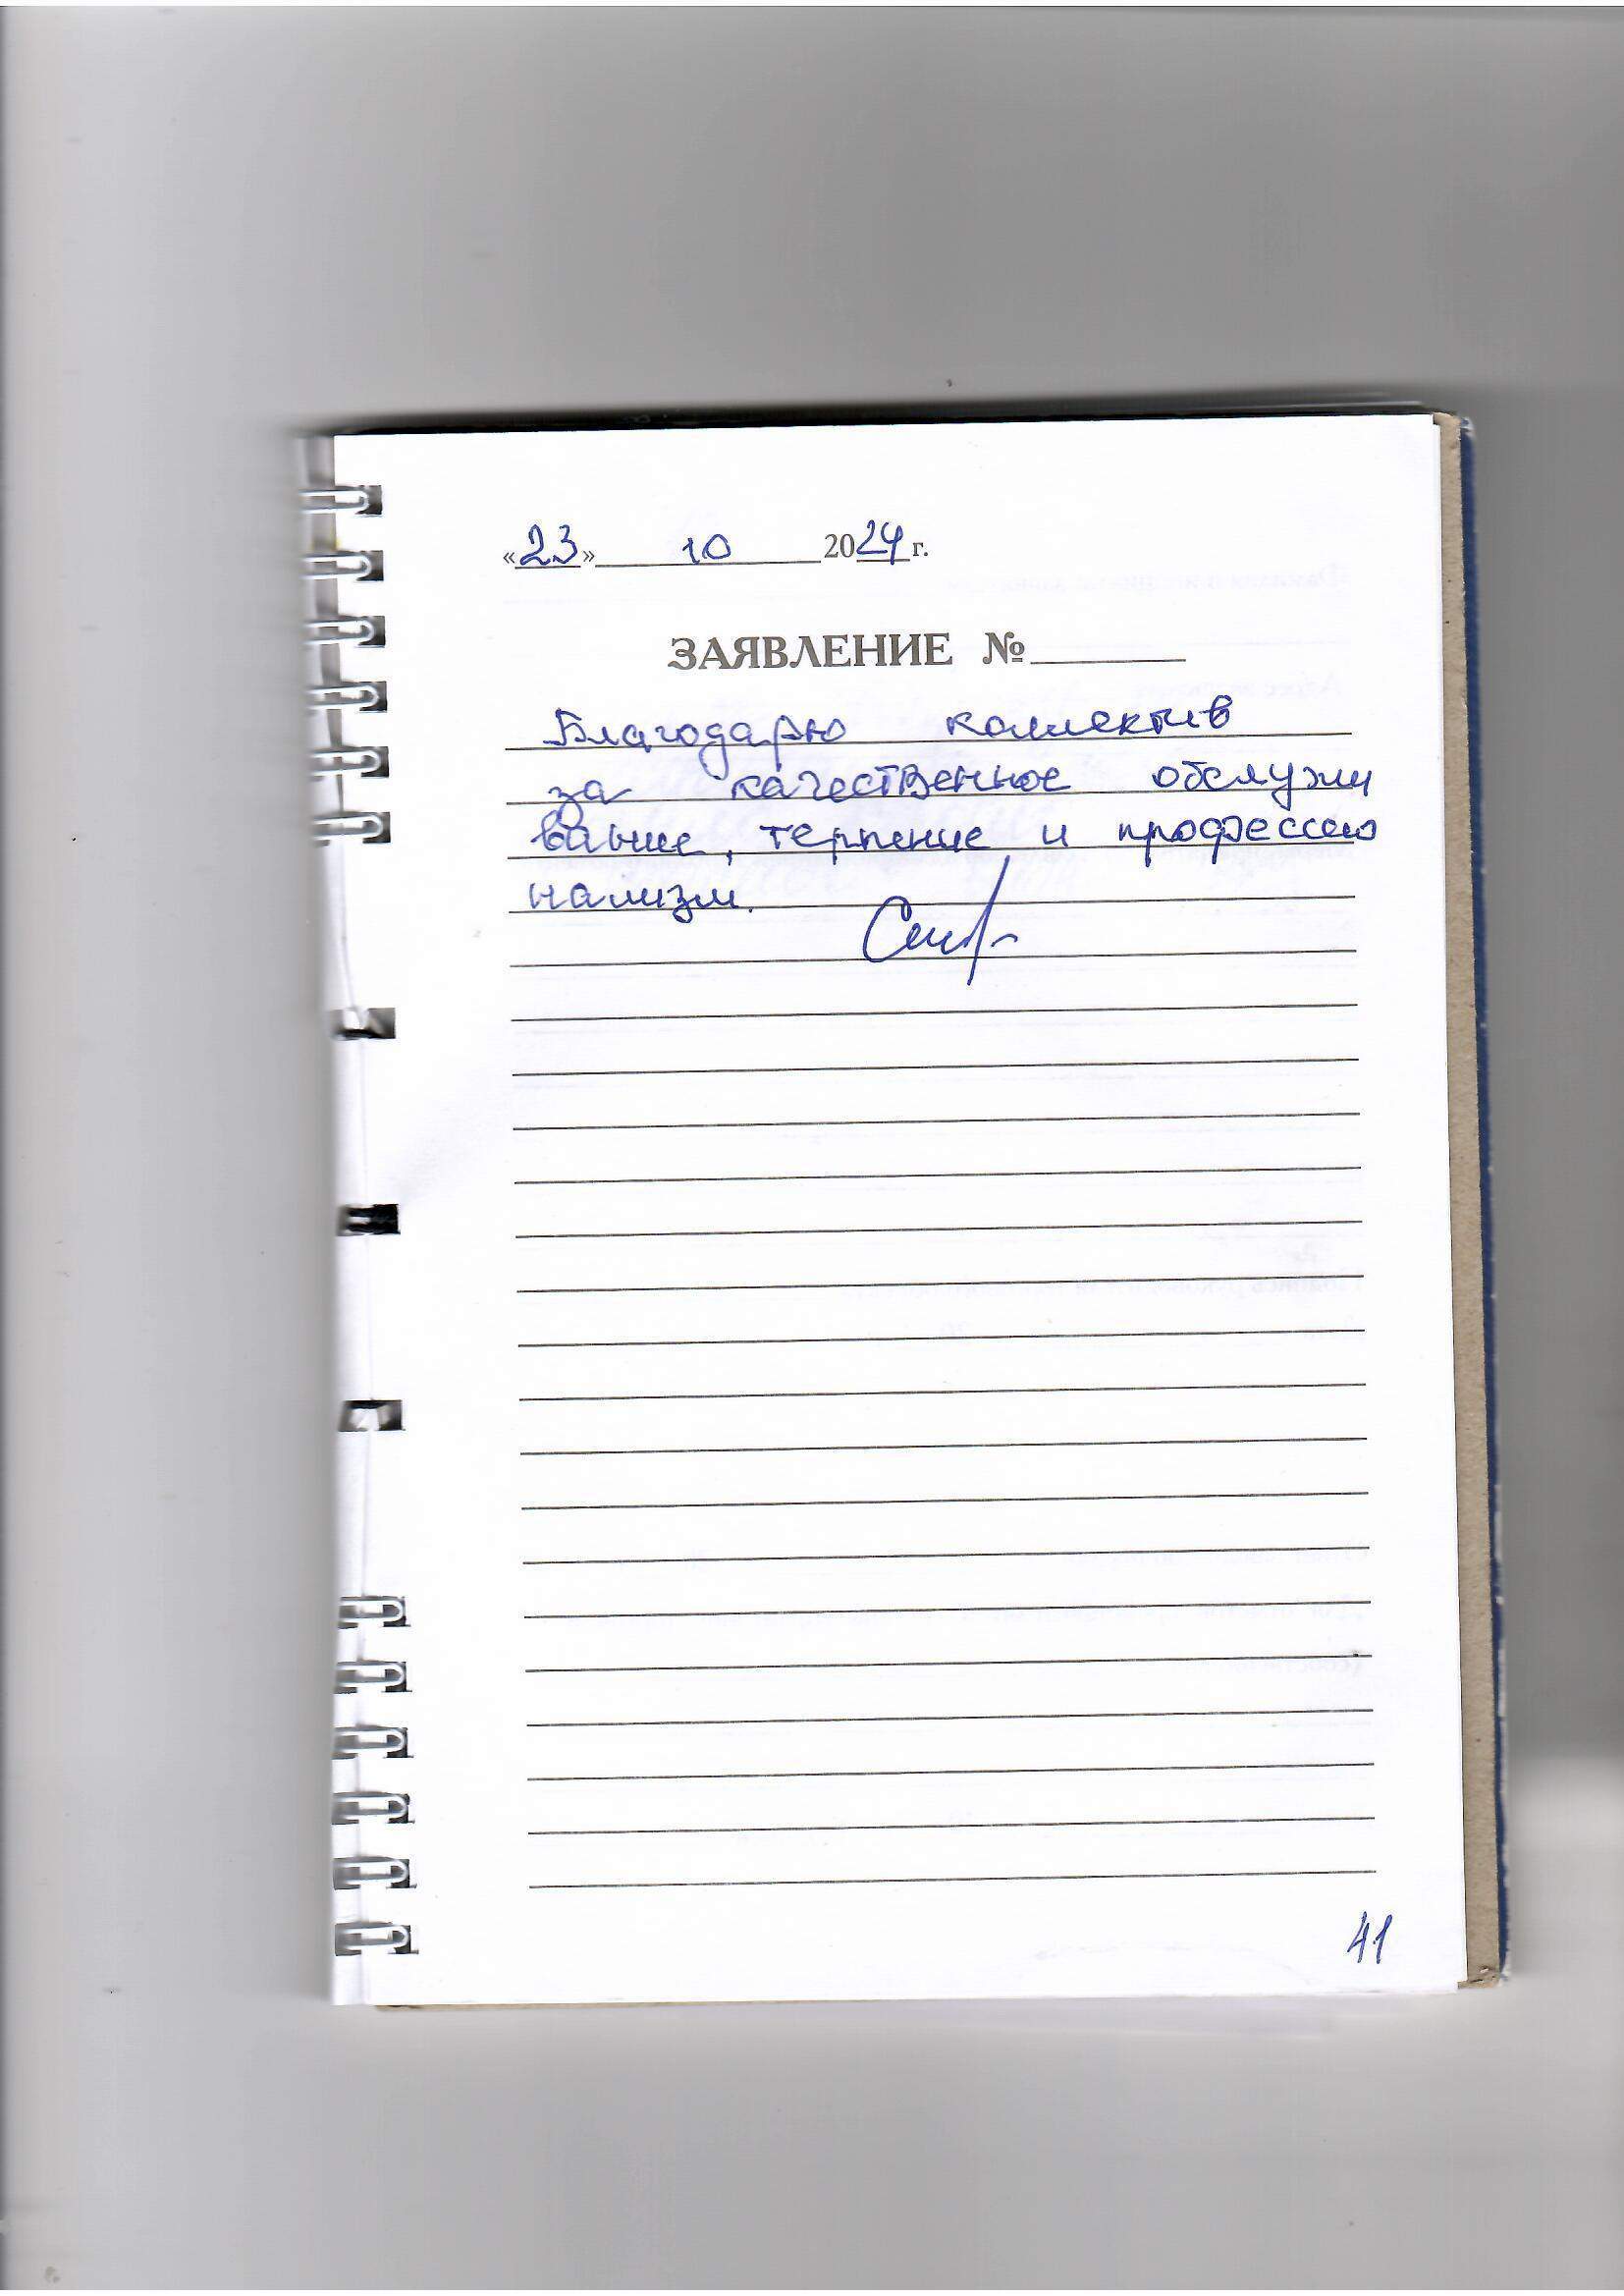 «23» 10 2024 г.
ЗАЯВЛЕНИЕ №
Благодарю коллектив
за качественное обслужи
вание, терпение и профессио
нализм.
41